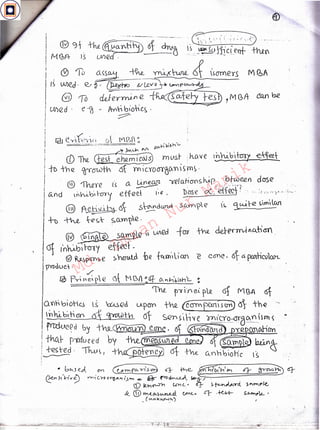 (iv) If the (quantity) of drug is sufficient then
MBA is used.
(v) To assay the mixture of isomers MBA
is used. e.g.
(vi) To determine the (safety test), MBA can be
used. e.g. - Antibiotics.
Criteria of MBA:
such as antibiotic
(i) The (test chemicals) must have inhibitory effect
to the growth of microorganisms.
(ii) There is a linear relationship between dose
and inhibitory effect i.e. Dose ∝ effect
(iii) Activity of standard sample is quite similar
to the test sample.
(iv) Single sample is used for the determination
of inhibitory effect.
(v) Response should be familiar & conc. of a particular
product
Principle of MBA of antibiotic:
The principle of MBA of
antibiotics is based upon the (comparison) of the
inhibition of growth of sensitive micro-organisms
produced by the (known) conc. of (standard) preparation
that produced by the (measured conc) of (sample) being
tested. Thus, the (potency) of the antibiotic is
• based on (comparison) of the inhibition of growth of
(sensitive) microorganism produced by:
(i) known conc. of standard sample
& (ii) measured conc. of test sample.
(unknown)